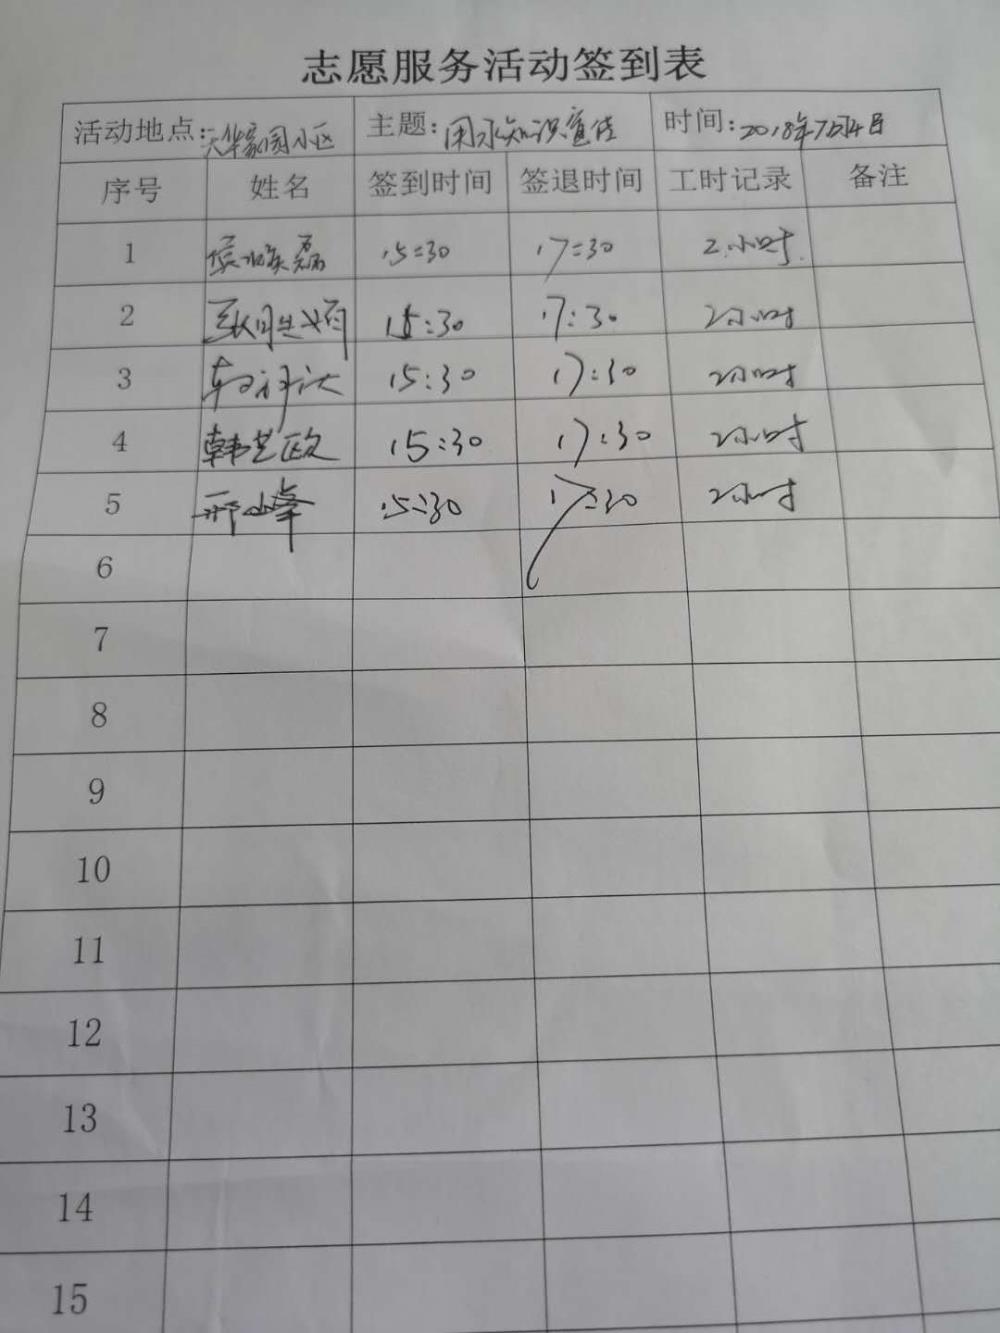 志愿服务活动签到表
活动地点:天华家园小区 主题:用水知识宣传 时间:2018年7月4日
序号 姓名 签到时间 签退时间 工时记录 备注
1 15:30 17:30 2小时
2 15:30 17:30 2小时
3 15:30 17:30 2小时
4 韩艺欧 15:30 17:30 2小时
5 邢峰 15:30 17:30 2小时
6
7
8
9
10
11
12
13
14
15